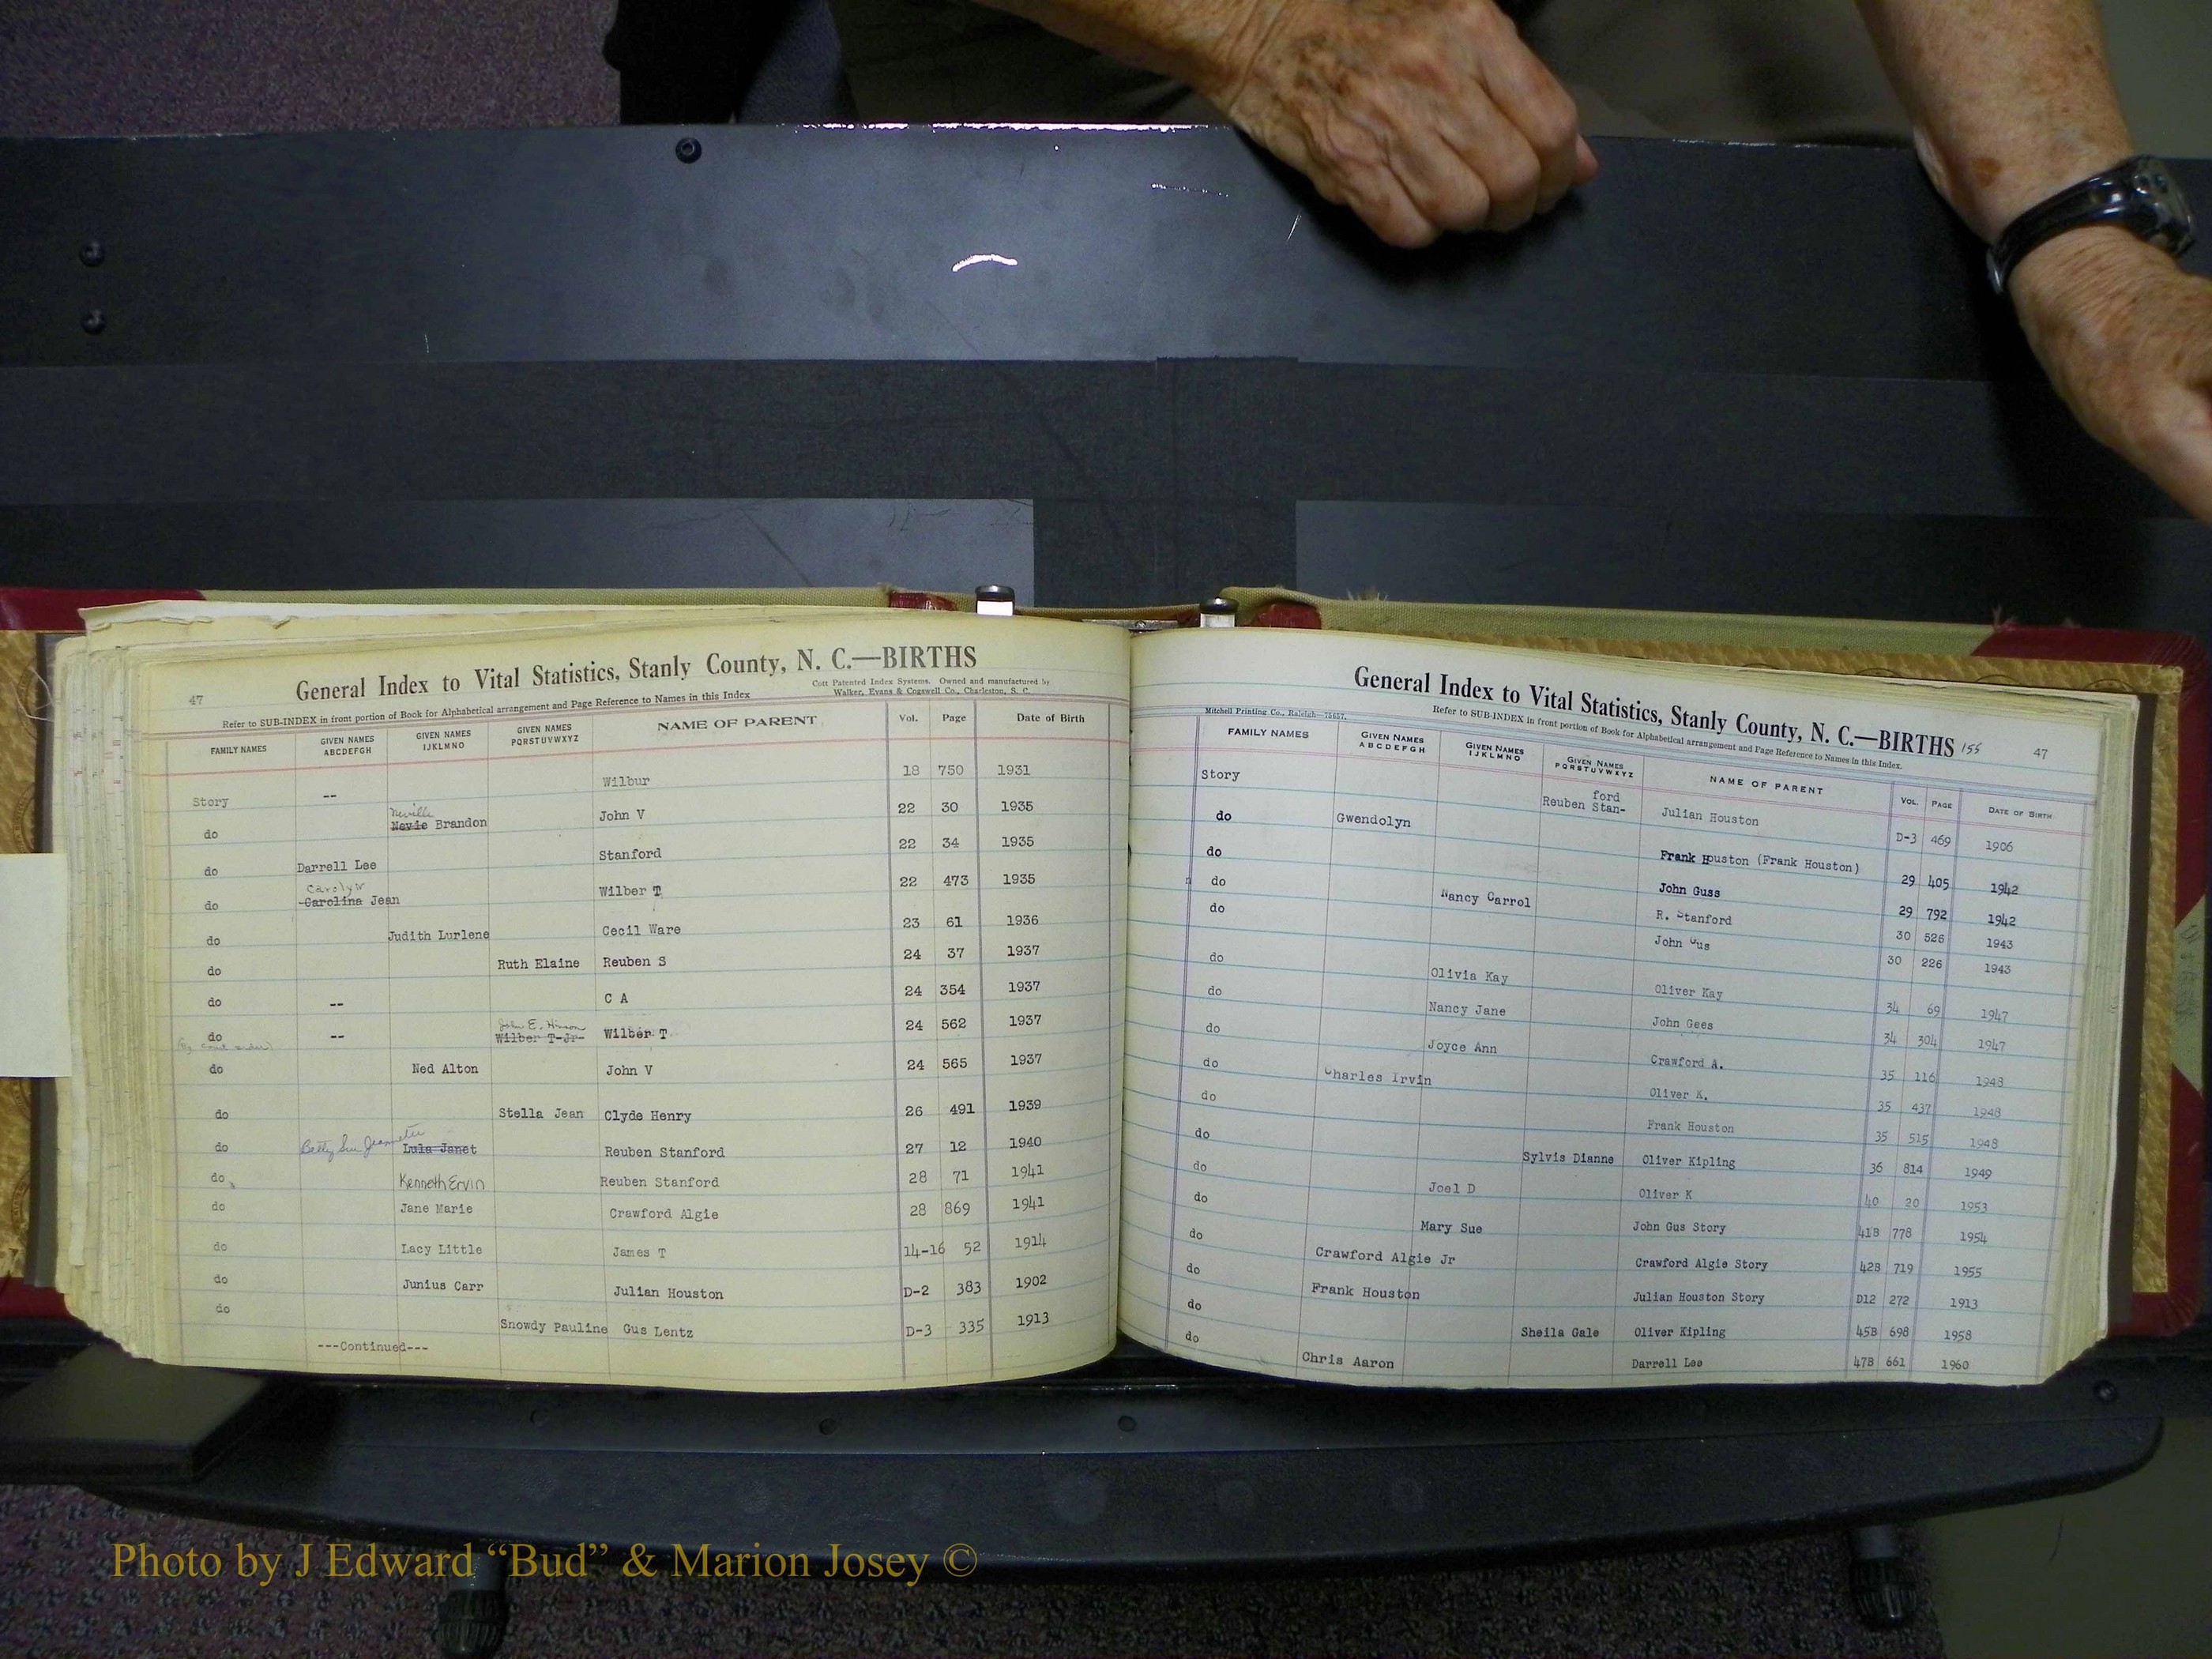 47
General Index to Vital Statistics, Stanly County, N. C.—BIRTHS
Cott Patented Index Systems. Owned and manufactured by
Walker, Evans & Cogswell Co., Charleston, S. C.
Refer to SUB-INDEX in front portion of Book for Alphabetical arrangement and Page Reference to Names in this Index
FAMILY NAMES GIVEN NAMES ABCDEFGH GIVEN NAMES IJKLMNO GIVEN NAMES PQRSTUVWXYZ NAME OF PARENT Vol. Page Date of Birth
Story -- Wilbur 18 750 1931
Neville
do Nevie Brandon John V 22 30 1935
do Darrell Lee Stanford 22 34 1935
Carolyn
do Carolina Jean Wilber T 22 473 1935
do Judith Lurlene Cecil Ware 23 61 1936
do Ruth Elaine Reuben S 24 37 1937
do -- C A 24 354 1937
John E. Hinson
do -- Wilber T Jr Wilber T 24 562 1937
(By court order)
do Ned Alton John V 24 565 1937
do Stella Jean Clyde Henry 26 491 1939
do Betty Sue Jeannette Lula Janet Reuben Stanford 27 12 1940
do Kenneth Ervin Reuben Stanford 28 71 1941
do Jane Marie Crawford Algie 28 869 1941
do Lacy Little James T 14-16 52 1914
do Junius Carr Julian Houston D-2 383 1902
do Snowdy Pauline Gus Lentz D-3 335 1913
---Continued---
General Index to Vital Statistics, Stanly County, N. C.—BIRTHS 155 47
Mitchell Printing Co., Raleigh—75657.
Refer to SUB-INDEX in front portion of Book for Alphabetical arrangement and Page Reference to Names in this Index.
FAMILY NAMES GIVEN NAMES ABCDEFGH GIVEN NAMES IJKLMNO GIVEN NAMES PQRSTUVWXYZ NAME OF PARENT VOL. PAGE DATE OF BIRTH
ford
Story Reuben Stan- Julian Houston D-3 469 1906
do Gwendolyn Frank Houston (Frank Houston) 29 405 1942
do John Guss 29 792 1942
do Nancy Carrol R. Stanford 30 526 1943
do John Gus 30 226 1943
do Olivia Kay Oliver Kay 34 69 1947
do Nancy Jane John Gees 34 304 1947
do Joyce Ann Crawford A. 35 116 1948
do Charles Irvin Oliver K. 35 437 1948
do Frank Houston 35 515 1948
do Sylvis Dianne Oliver Kipling 36 814 1949
do Joel D Oliver K 40 20 1953
do Mary Sue John Gus Story 41B 778 1954
do Crawford Algie Jr Crawford Algie Story 42B 719 1955
do Frank Houston Julian Houston Story D12 272 1913
do Sheila Gale Oliver Kipling 45B 698 1958
do Chris Aaron Darrell Lee 47B 661 1960
Photo by J Edward “Bud” & Marion Josey ©